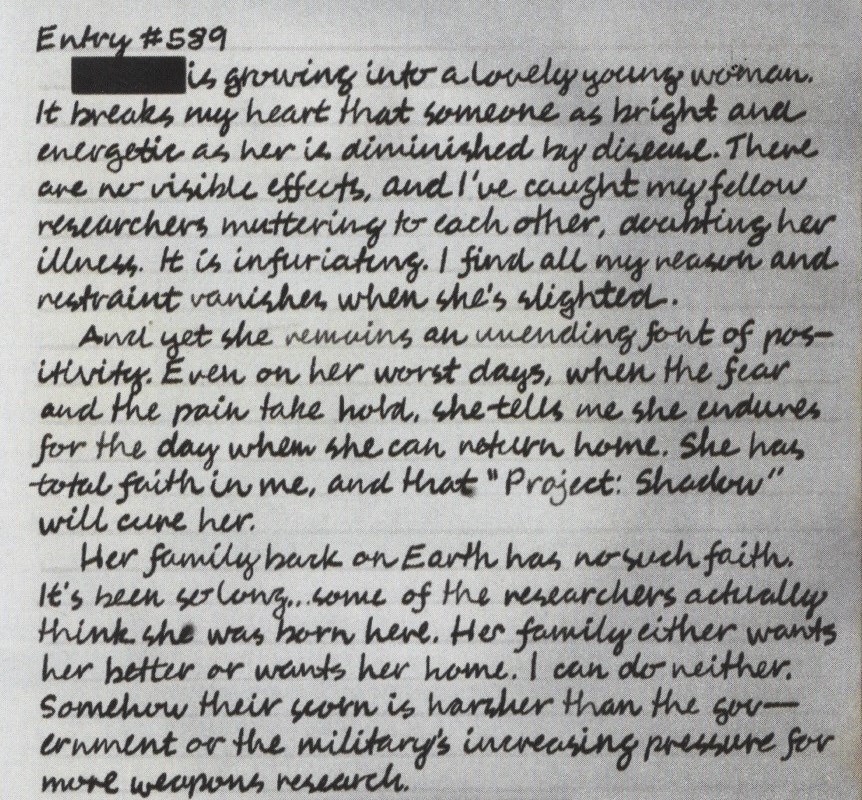 Entry #589
is growing into a lovely young woman.
It breaks my heart that someone as bright and
energetic as her is diminished by disease. There
are no visible effects, and I've caught my fellow
researchers muttering to each other, doubting her
illness. It is infuriating. I find all my reason and
restraint vanishes when she's slighted.
And yet she remains an unending font of pos-
itivity. Even on her worst days, when the fear
and the pain take hold, she tells me she endures
for the day when she can return home. She has
total faith in me, and that "Project: Shadow"
will cure her.
Her family back on Earth has no such faith.
It's been so long...some of the researchers actually
think she was born here. Her family either wants
her better or wants her home. I can do neither.
Somehow their scorn is harsher than the gov-
ernment or the military's increasing pressure for
more weapons research.